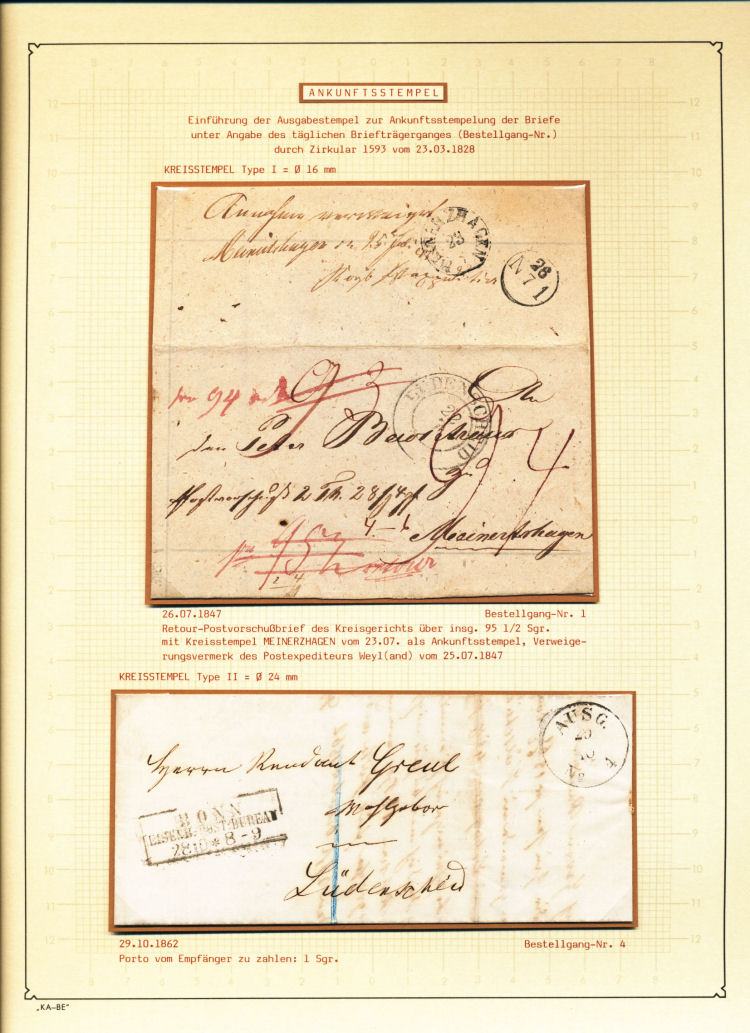 ANKUNFTSSTEMPEL
Einführung der Ausgabestempel zur Ankunftsstempelung der Briefe
unter Angabe des täglichen Briefträgerganges (Bestellgang-Nr.)
durch Zirkular 1593 vom 23.03.1828
KREISSTEMPEL Type I = Ø 16 mm
Annahme verweigert
Meinertzhagen
MEINERZHAGEN
23
26
7
N 1
LÜDENSCHEID
94
93
An
den Peter
Postvorschuß 2 Th. 28
94
4-6
Meinertzhagen
retour
26.07.1847 Bestellgang-Nr. 1
Retour-Postvorschußbrief des Kreisgerichts über insg. 95 1/2 Sgr.
mit Kreisstempel MEINERZHAGEN vom 23.07. als Ankunftsstempel, Verweige-
rungsvermerk des Postexpediteurs Weyl(and) vom 25.07.1847
KREISSTEMPEL Type II = Ø 24 mm
AUSG.
29
10
No 4
Herrn Rendant Greul
Wohlgebor
in
Lüdenscheid
BONN
EISENB. POST-BUREAU
28 10 * 8-9
29.10.1862 Bestellgang-Nr. 4
Porto vom Empfänger zu zahlen: 1 Sgr.
„KA–BE"